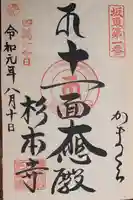 坂東第一番
かまくら
十一面大悲殿
杉本寺
令和元年八月十日